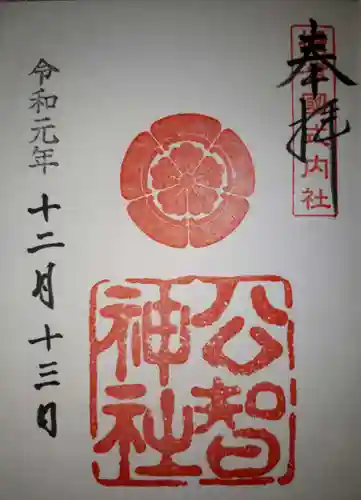 奉拝
國式内社
公智
神社
令和元年十二月十三日